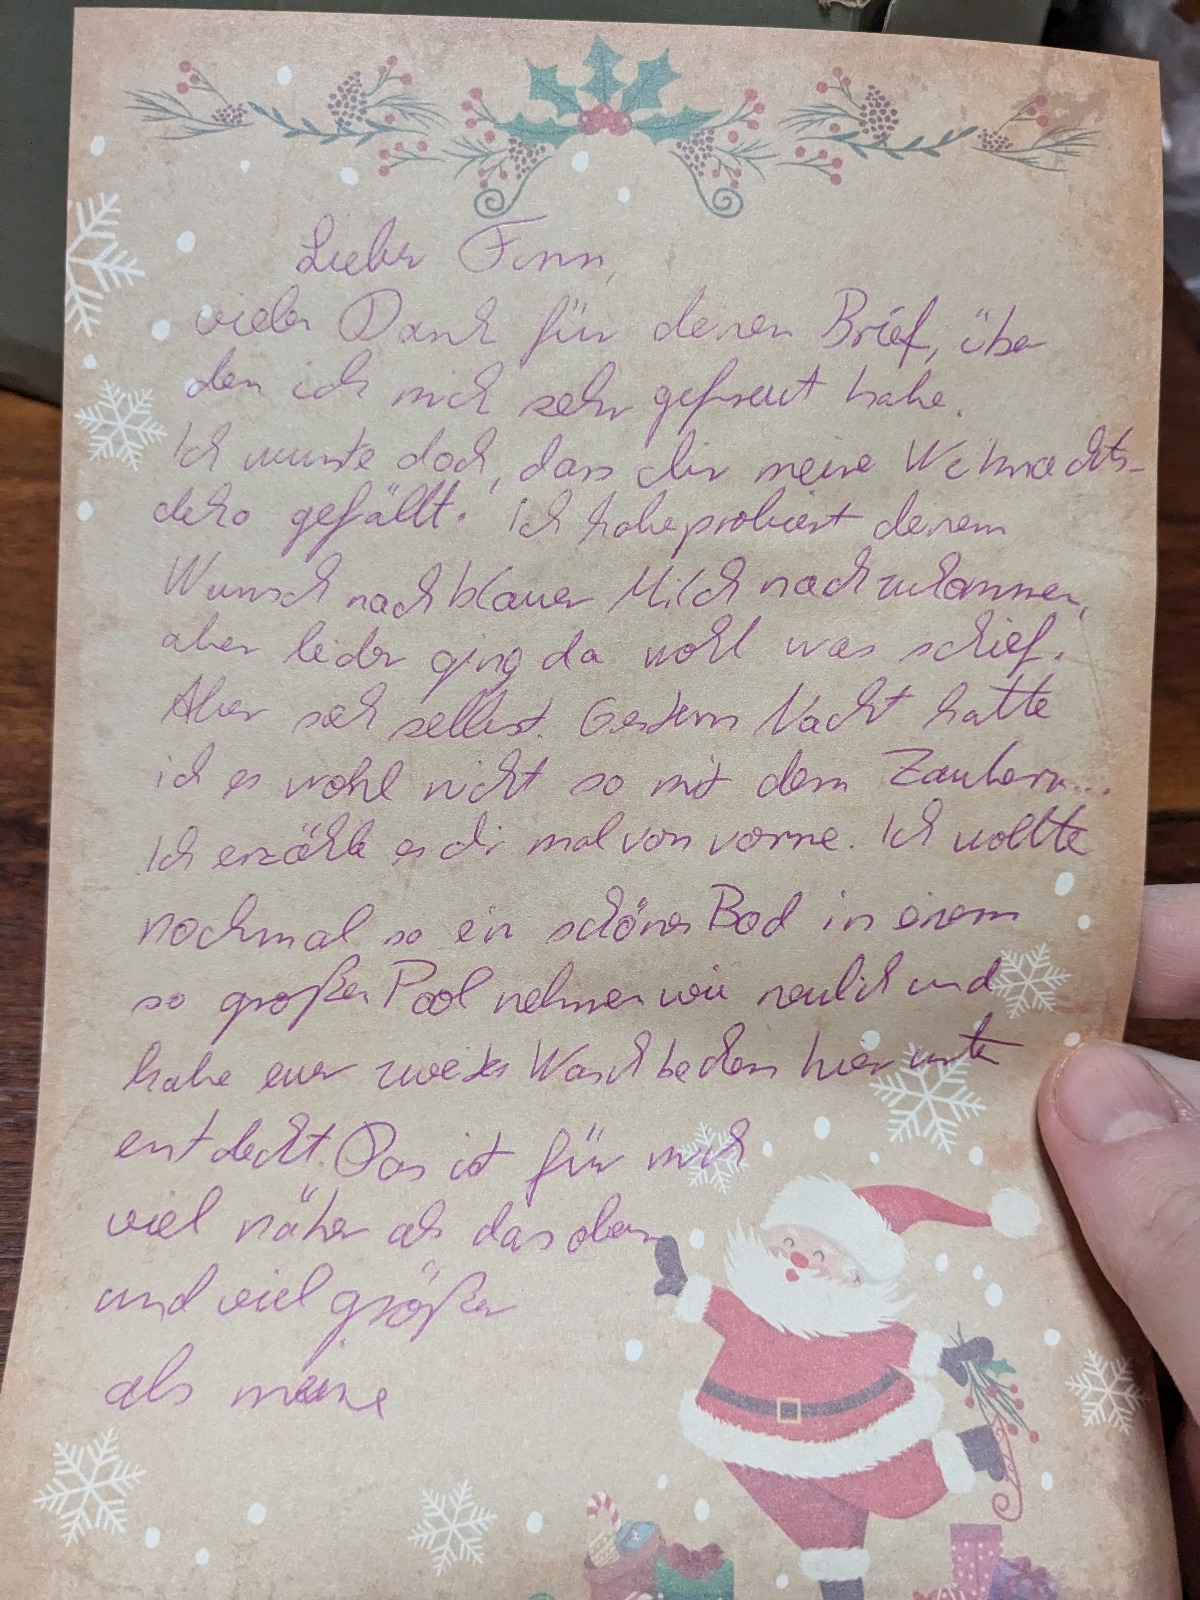 Lieber Finn,
vielen Dank für deinen Brief, über
den ich mich sehr gefreut habe.
Ich wusste doch, dass dir meine Weihnachts-
deko gefällt. Ich habe probiert deinem
Wunsch nach blauer Milch nachzukommen,
aber leider ging da wohl was schief.
Aber sieh selbst. Gestern Nacht hatte
ich es wohl nicht so mit dem Zaubern...
Ich erzähle es dir mal von vorne. Ich wollte
nochmal so ein schönes Bad in einem
so großen Pool nehmen wie neulich und
habe euer zweites Waschbecken hier unten
entdeckt. Das ist für mich
viel näher als das oben
und viel größer
als meine